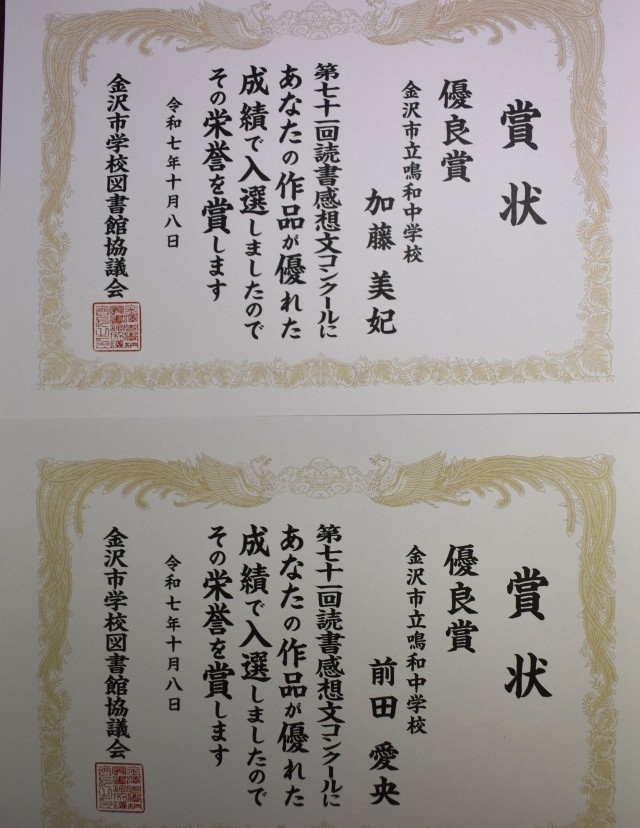 賞状
優良賞
金沢市立鳴和中学校
加藤美妃
第七十一回読書感想文コンクールに
あなたの作品が優れた
成績で入選しましたので
その栄誉を賞します
令和七年十月八日
金沢市学校図書館協議会
賞状
優良賞
金沢市立鳴和中学校
前田愛央
第七十一回読書感想文コンクールに
あなたの作品が優れた
成績で入選しましたので
その栄誉を賞します
令和七年十月八日
金沢市学校図書館協議会